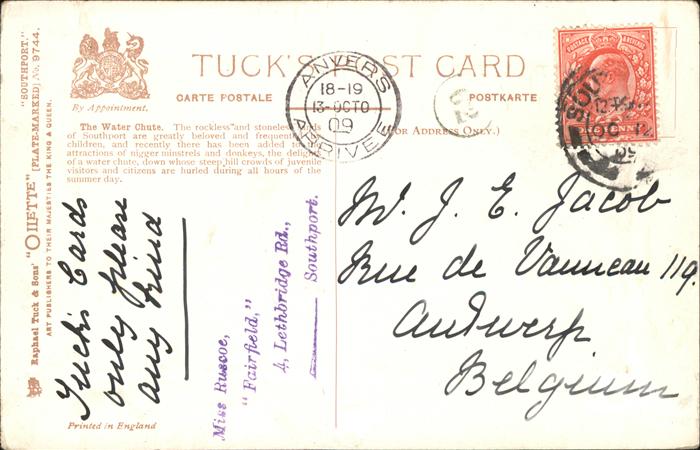 "SOUTHPORT."
Raphael Tuck & Sons' "OILETTE" [PLATE-MARKED] No. 9744.
ART PUBLISHERS TO THEIR MAJESTIES THE KING & QUEEN.
By Appointment.
TUCK'S POST CARD
CARTE POSTALE
POSTKARTE
(FOR ADDRESS ONLY.)
The Water Chute. The rockless and stoneless sands
of Southport are greatly beloved and frequented by
children, and recently there has been added to the
attractions of nigger minstrels and donkeys, the delights
of a water chute, down whose steep hill crowds of juvenile
visitors and citizens are hurled during all hours of the
summer day.
ANVERS
18-19
13-OCTO
09
ARRIVEE
POSTAGE REVENUE
ONE PENNY
OC 12
09
Tucks Cards
only please
any kind
Miss Ruscoe,
"Fairfield,"
4, Lethbridge Rd.,
Southport.
M. J. E. Jacob
Rue de Vanneau 119.
Antwerp
Belgium
Printed in England